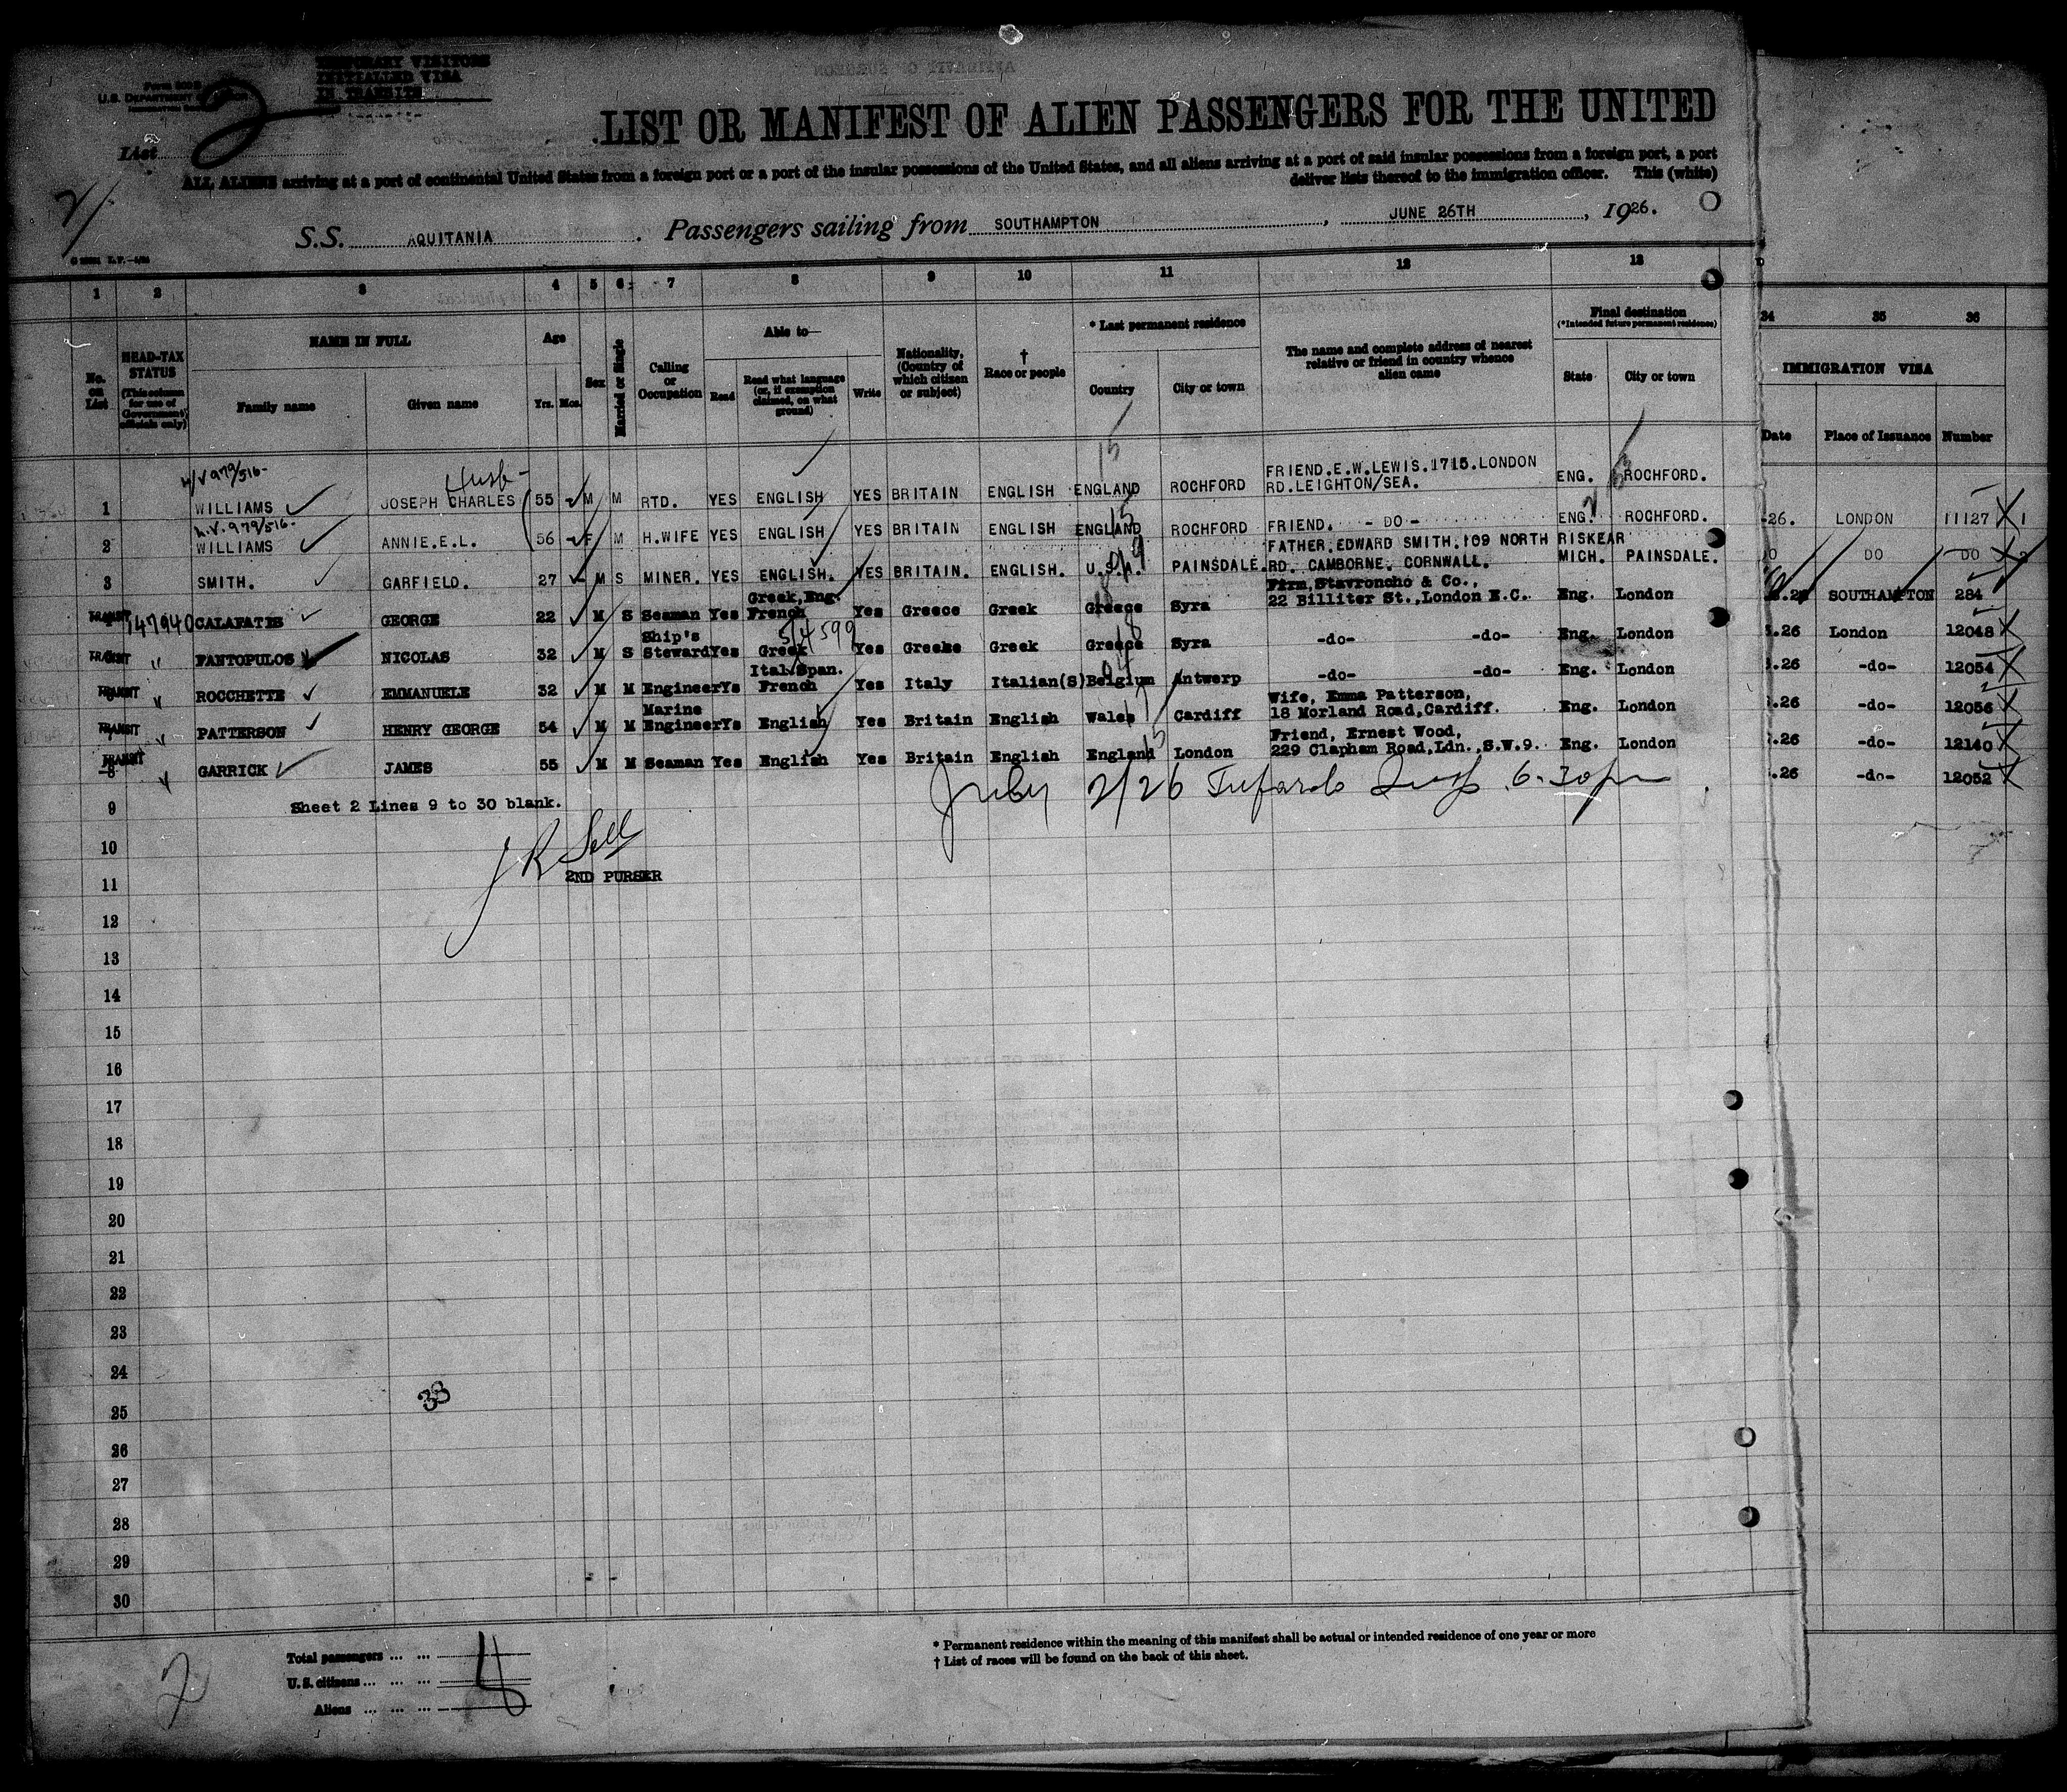 TEMPORARY VISITORS
INITIALLED VISA
IN TRANSITS
U.S. DEPARTMENT
2
List
LIST OR MANIFEST OF ALIEN PASSENGERS FOR THE UNITED
ALL ALIENS arriving at a port of continental United States from a foreign port or a port of the insular possessions of the United States, and all aliens arriving at a port of said insular possessions from a foreign port, a port
deliver lists thereof to the immigration officer. This (white)
2/
S.S. AQUITANIA. Passengers sailing from SOUTHAMPTON, JUNE 26TH, 1926.
1 2 3 4 5 6 7 8 9 10 11 12 13 34 35 36
No. on List
HEAD-TAX STATUS
(This column for use of Government officials only)
NAME IN FULL
Family name Given name
Age
Yrs. Mos.
Sex
Married or Single
Calling or Occupation
Able to—
Read Read what language (or, if exemption claimed, on what ground) Write
Nationality, (Country of which citizen or subject)
† Race or people
* Last permanent residence
Country City or town
The name and complete address of nearest relative or friend in country whence alien came
Final destination
(*Intended future permanent residence)
State City or town
IMMIGRATION VISA
Date Place of Issuance Number
979/516-
Husb-
1 WILLIAMS JOSEPH CHARLES 55 M M RTD. YES ENGLISH YES BRITAIN ENGLISH ENGLAND ROCHFORD FRIEND.E.W.LEWIS.1715.LONDON RD.LEIGHTON/SEA. ENG. ROCHFORD. 26. LONDON 11127
979/516-
2 WILLIAMS ANNIE.E.L. 56 F M H.WIFE YES ENGLISH YES BRITAIN ENGLISH ENGLAND ROCHFORD FRIEND. -DO- ENG. ROCHFORD. DO DO
3 SMITH. GARFIELD. 27 M S MINER. YES ENGLISH. YES BRITAIN. ENGLISH. U.S.A. PAINSDALE. FATHER.EDWARD SMITH.109 NORTH RISKEAR RD. CAMBORNE. CORNWALL. MICH. PAINSDALE. SOUTHAMPTON 284
TRANSIT 147940 CALAFATIS GEORGE 22 M S Seaman Yes Greek,Eng. French Yes Greece Greek Greece Syra Firm,Stavroncho & Co., 22 Billiter St.,London E.C. Eng. London .26 London 12048
TRANSIT " FANTOPULOS NICOLAS 32 M S Ship's Steward Yes Greek Yes Greeke Greek Greece Syra -do- -do- Eng. London .26 -do- 12054
514599
TRANSIT " ROCCHETTE EMMANUELE 32 M M Engineer Ys Ital.Span. French Yes Italy Italian(S) Belgium Antwerp -do- -do- Eng. London .26 -do- 12056
TRANSIT PATTERSON HENRY GEORGE 54 M M Marine Engineer Ys English Yes Britain English Wales Cardiff Wife, Emma Patterson, 18 Morland Road,Cardiff. Eng. London .26 -do- 12140
TRANSIT 8 GARRICK JAMES 55 M M Seaman Yes English Yes Britain English England London Friend, Ernest Wood, 229 Clapham Road,Ldn.,S.W.9. Eng. London .26 -do- 12052
9 Sheet 2 Lines 9 to 30 blank.
July 2/26 6-30pm
10
J R Sell
11 2ND PURSER
12
13
14
15
16
17
18
19
20
21
22
23
24
25
33
26
27
28
29
30
Total passengers ... ...
U.S. citizens ... ... ...
Aliens ... ... ...
4
2
* Permanent residence within the meaning of this manifest shall be actual or intended residence of one year or more
† List of races will be found on the back of this sheet.